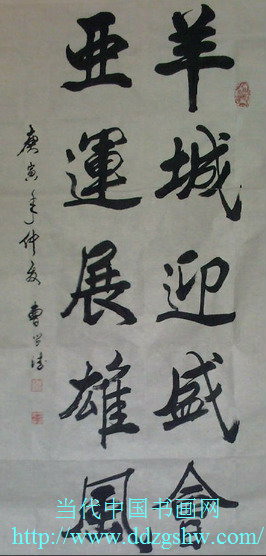 羊城迎盛會
亞運展雄風
庚寅年仲夏 曹
当代中国书画网
http://www.ddzgshw.com/